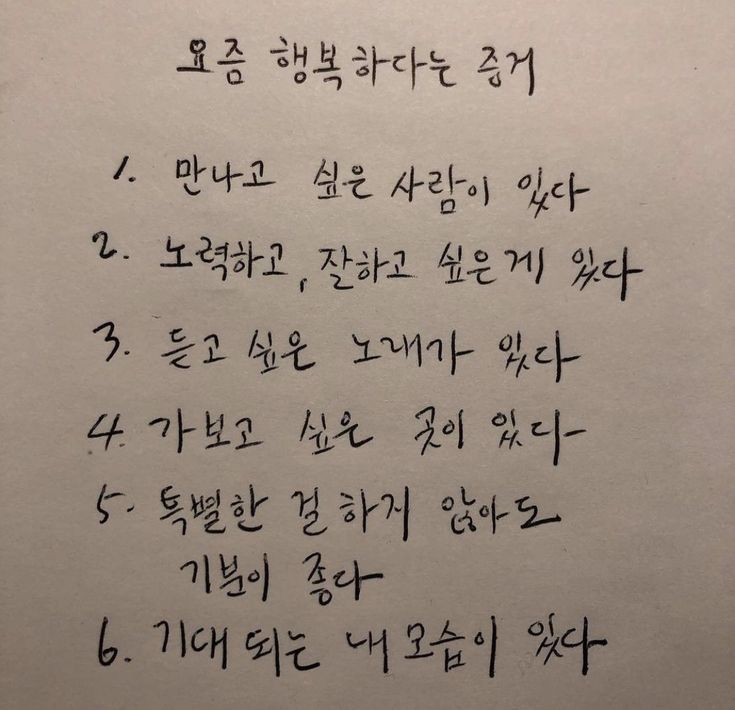 요즘 행복하다는 증거
1. 만나고 싶은 사람이 있다
2. 노력하고, 잘하고 싶은게 있다
3. 듣고 싶은 노래가 있다
4. 가보고 싶은 곳이 있다
5. 특별한 걸 하지 않아도
기분이 좋다
6. 기대 되는 내 모습이 있다